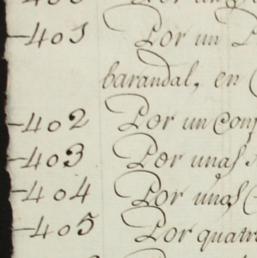 -401 Por un
barandal, en
-402 Por un
-403 Por unas
-404 Por unas
-405 Por quatro